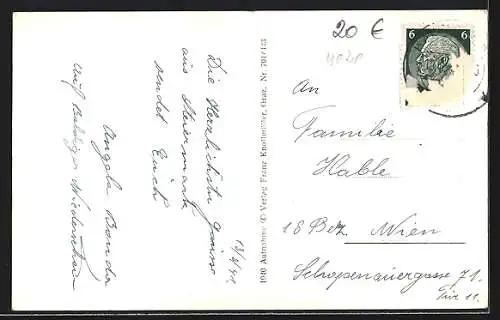 20 €
6 6
13/4 41.
Die Herzlichsten Grüsse
aus Steiermark
sendet Euch
Angela
auf baldiges Wiedersehen
1940 Aufnahme © Verlag Franz Knollmüller, Graz. Nr.
An
Familie
Hable
18 Bez. Wien
Schopenauergasse 71.
Tür 11.